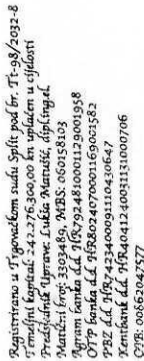 Registrirano u Trgovačkom sudu Split pod br. Tt-98/2032-8
Temeljni kapital 242.276.300,00 kn uplaćen u cijelosti
Predsjednik Uprave: Luka Matušić, dipl.ing.el.
Matični broj: 3303489, MBS: 060158103
Agram banka d.d. HR7924810001129001958
OTP banka d.d. HR8024070001169001582
PBZ d.d. HR7423400091110430647
Kentbank d.d. HR4041240031131000706
OIB: 00662047577